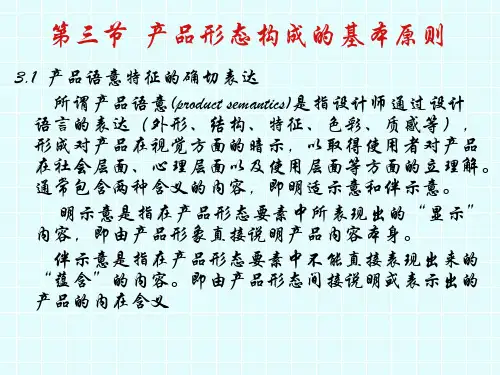 第三节 产品形态构成的基本原则
3.1 产品语意特征的确切表达
所谓产品语意(product semantics)是指设计师通过设计
语言的表达（外形、结构、特征、色彩、质感等），
形成对产品在视觉方面的暗示，以取得使用者对产品
在社会层面、心理层面以及使用层面等方面的立理解。
通常包含两种含义的内容，即明适示意和伴示意。
明示意是指在产品形态要素中所表现出的“显示”
内容，即由产品形象直接说明产品内容本身。
伴示意是指在产品形态要素中不能直接表现出来的
“蕴含”的内容。即由产品形态间接说明或表示出的
产品的内在含义